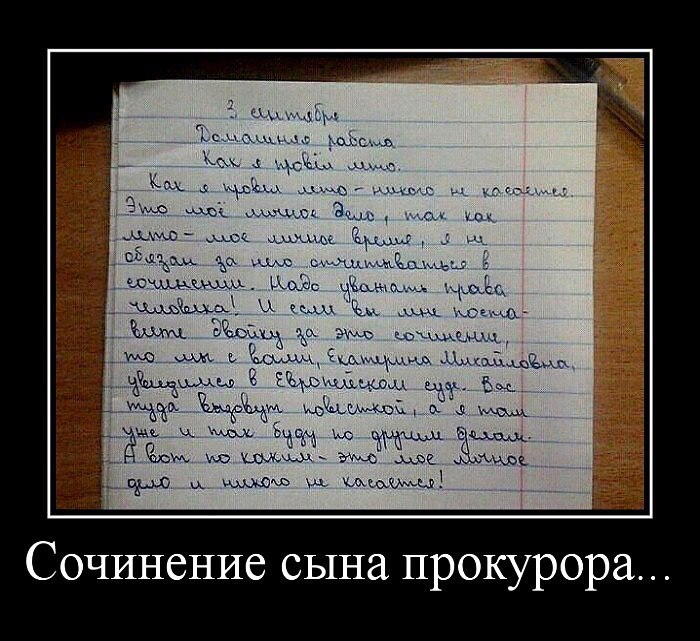 3 сентября
Домашняя работа
Как я провёл лето.
Как я провел лето - никого не касается.
Это моё личное дело, так как
лето - мое личное время, я не
обязан за него отчитываться в
сочинении. Надо уважать права
человека! И если вы мне поста-
вите двойку за это сочинение,
то мы с вами, Екатерина Михайловна,
увидимся в Европейском суде. Вас
туда вызовут повесткой, а я там
уже и так буду по другим делам.
А вот по каким - это мое личное
дело и никого не касается!
Сочинение сына прокурора...